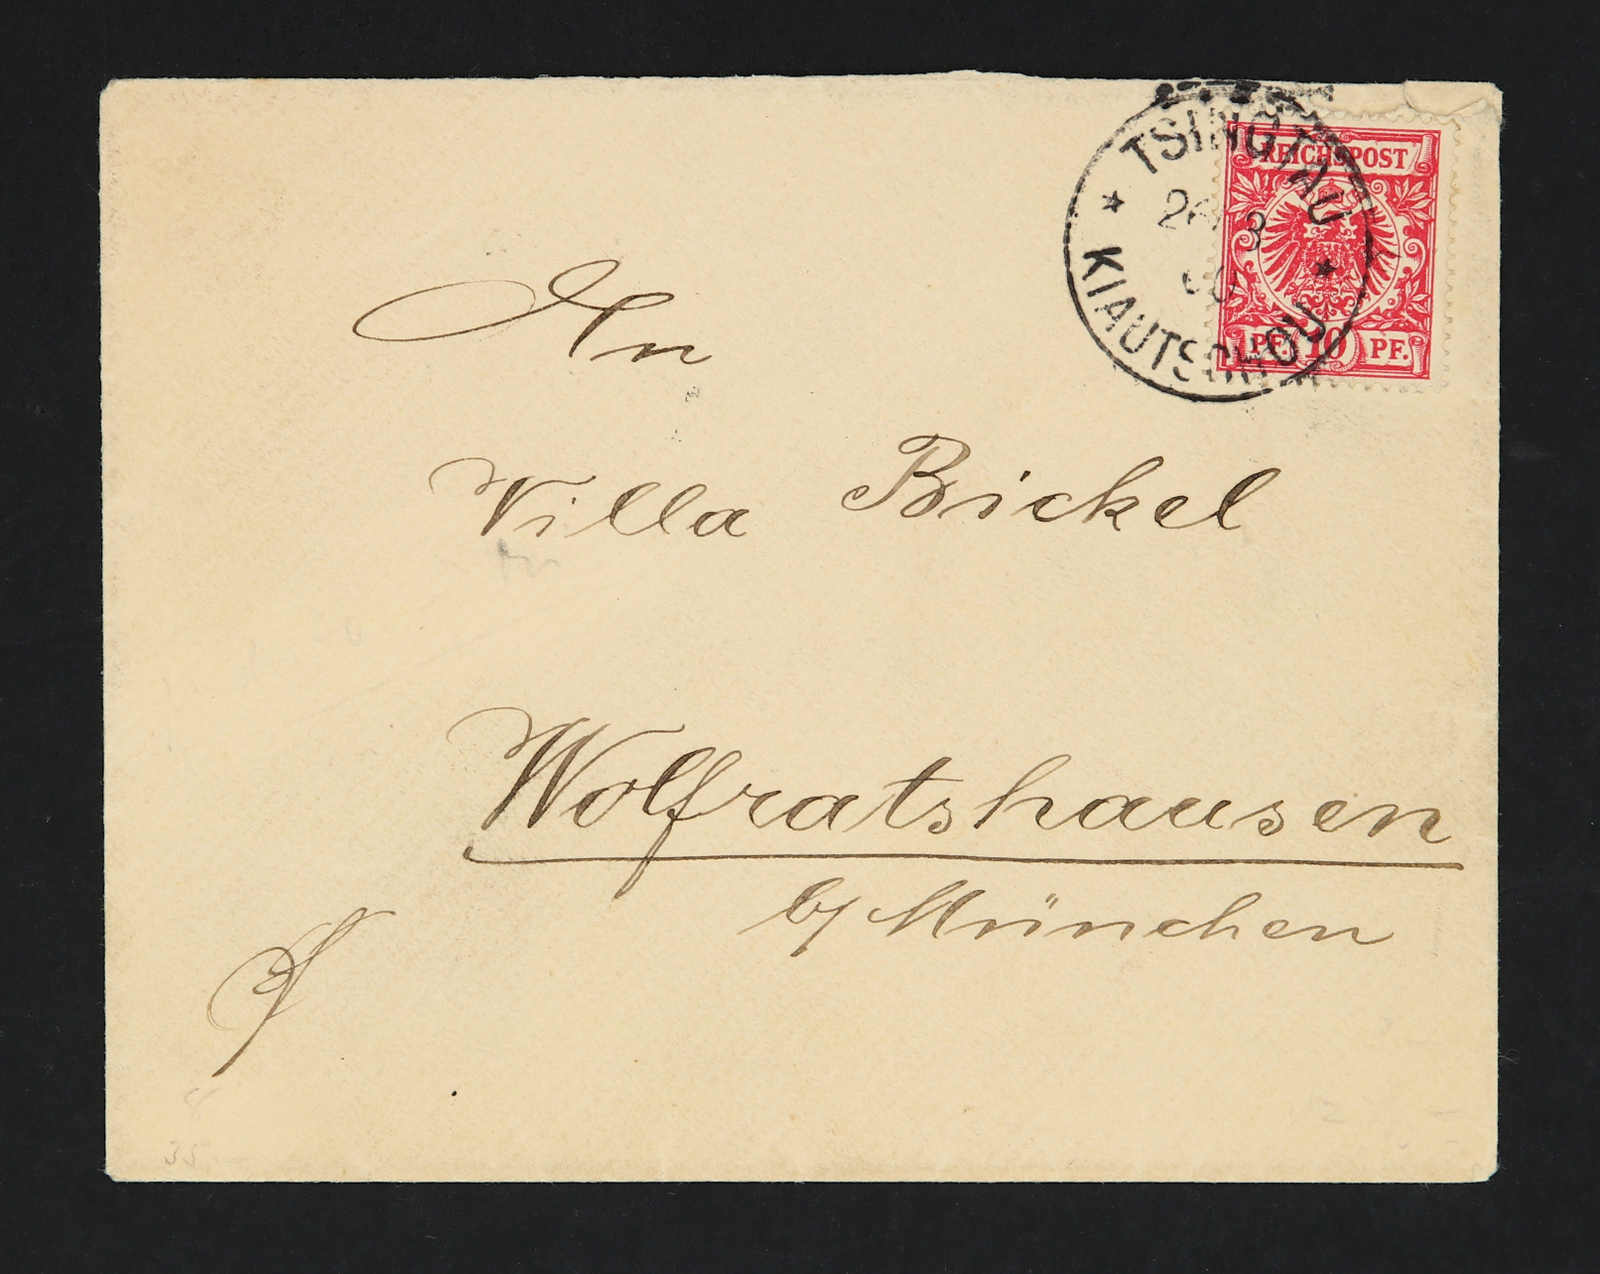 TSINGTAU
KIAUTSCHOU
REICHSPOST
PF. 10 PF.
An
Villa Bickel
Wolfratshausen
b/ München
35